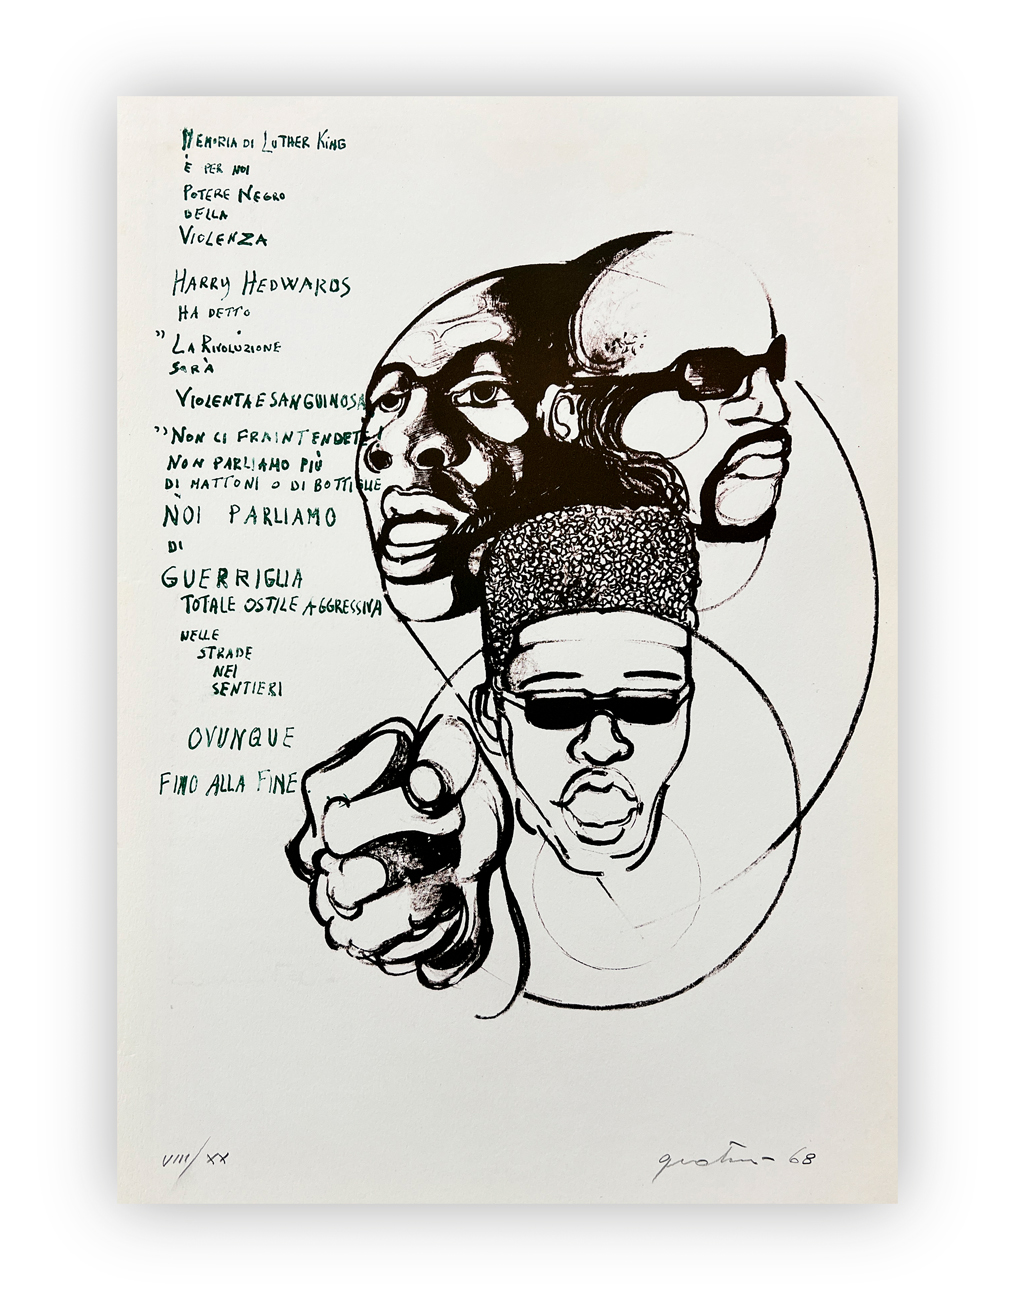 MEMORIA DI LUTHER KING
È PER NOI
POTERE NEGRO
DELLA
VIOLENZA
HARRY HEDWARDS
HA DETTO
" LA RIVOLUZIONE
SARÀ
VIOLENTA E SANGUINOSA
" NON CI FRAINTENDETE!
NON PARLIAMO PIÙ
DI MATTONI O DI BOTTIGLIE
NOI PARLIAMO
DI
GUERRIGLIA
TOTALE OSTILE AGGRESSIVA
NELLE
STRADE
NEI
SENTIERI
OVUNQUE
FINO ALLA FINE
VIII/XX
68